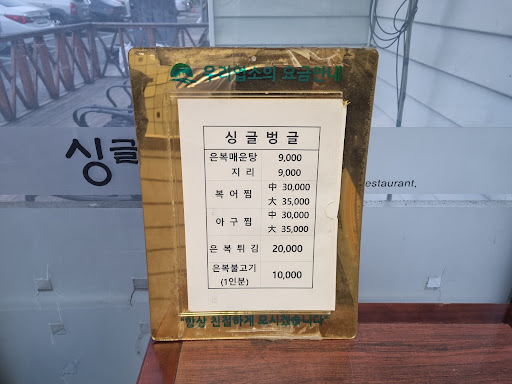 우리업소의 요금안내
싱글벙글
은복매운탕 9,000
지리 9,000
복어찜 中 30,000
大 35,000
아구찜 中 30,000
大 35,000
은복튀김 20,000
은복불고기 10,000
(1인분)
"항상 친절하게 모시겠습니다"
싱글
restaurant.